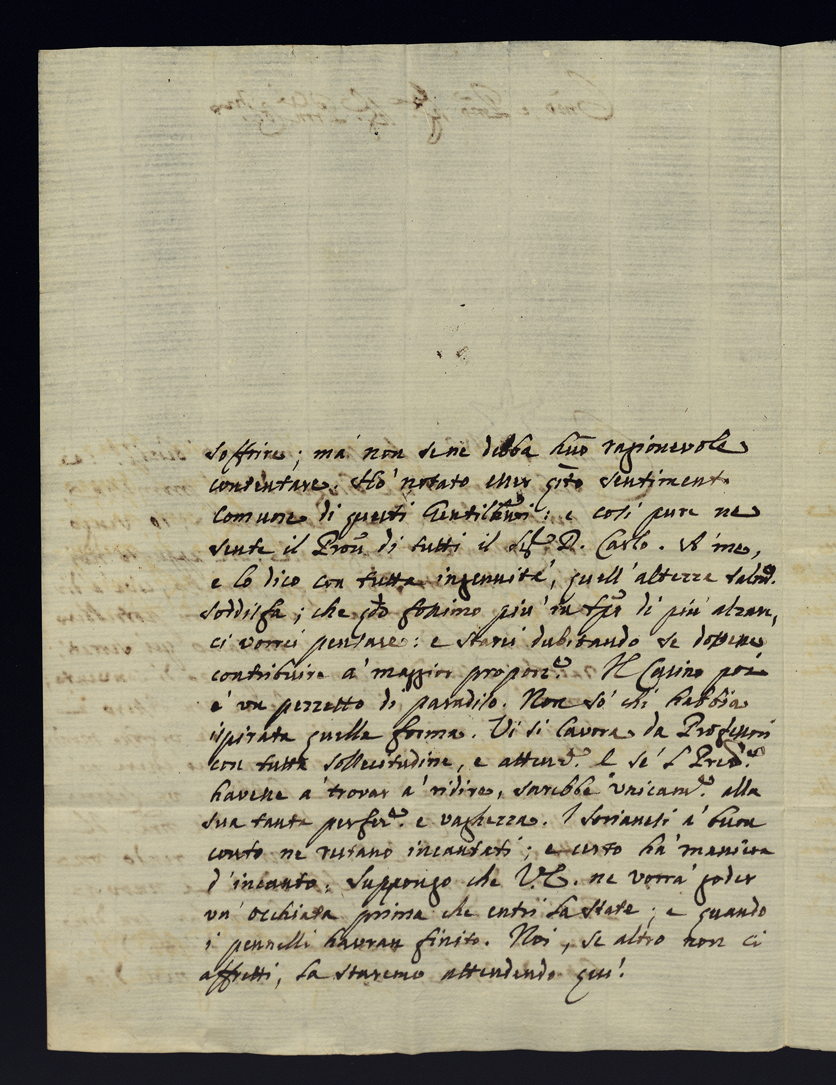 soffrire; mà non se ne debba huō ragionevole
contentare. Hò notato esser q̄sto sentimento
comune di questi Gentilhuōi: e così pure ne
sente il di tutti il Sig.r D. Carlo. A' me,
e lo dico con tutta ingenuità, quell'altezza
soddisfa; che q̄do fossimo più in di più alzare,
ci vorrei pensare: e starei dubitando se dovesse
contribuire à maggior proporz.e Il Casino poi
è un pezzetto di paradiso. Non sò chi habbia
ispirata quella forma. Vi si lavora da Professori
con tutta sollecitudine, e attenz.e E se
havesse à trovar à ridire, sarebbe unicam.te alla
sua tanta perfez.e e vaghezza. I Sorianesi à buon
conto ne restano incantati; e certo hà maniera
d'incanto. Suppongo che V.E. ne vorrà goder
un'occhiata prima che entri la state; e quando
i pennelli havran finito. Noi, se altro non ci
affretti, la staremo attendendo quì.